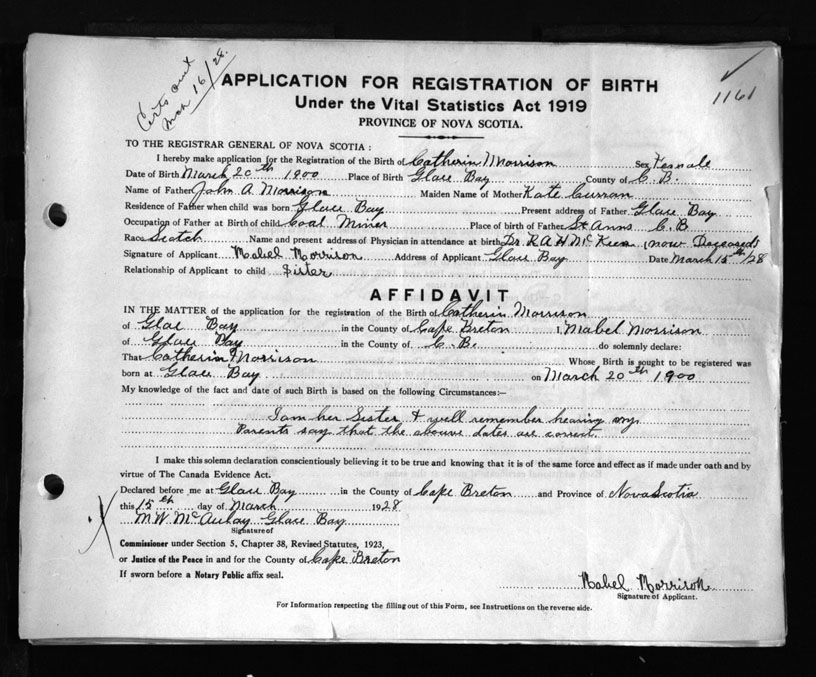 Certs out
Mar 16/28.
1161
APPLICATION FOR REGISTRATION OF BIRTH
Under the Vital Statistics Act 1919
PROVINCE OF NOVA SCOTIA.
TO THE REGISTRAR GENERAL OF NOVA SCOTIA :
I hereby make application for the Registration of the Birth of Catherin Morrison Sex Female
Date of Birth March 20th 1900 Place of Birth Glace Bay County of C. B.
Name of Father John A. Morrison Maiden Name of Mother Kate Curran
Residence of Father when child was born Glace Bay Present address of Father Glace Bay
Occupation of Father at Birth of child Coal Miner Place of birth of Father St Anns C. B
Race Scotch Name and present address of Physician in attendance at birth Dr. R A H McKeen (now Deceased)
Signature of Applicant Mabel Morrison Address of Applicant Glace Bay Date March 15th/28
Relationship of Applicant to child Sister
AFFIDAVIT
IN THE MATTER of the application for the registration of the Birth of Catherin Morrison
of Glace Bay in the County of Cape Breton I, Mabel Morrison
of Glace Bay in the County of C. B. do solemnly declare:
That Catherin Morrison Whose Birth is sought to be registered was
born at Glace Bay on March 20th 1900
My knowledge of the fact and date of such Birth is based on the following Circumstances:—
I am her Sister & well remember hearing my
Parents say that the abouve dates are correct.
I make this solemn declaration conscientiously believing it to be true and knowing that it is of the same force and effect as if made under oath and by
virtue of The Canada Evidence Act.
Declared before me at Glace Bay in the County of Cape Breton and Province of Nova Scotia
this 15th day of March 1928
M. W. McAulay Glace Bay
Signature of
Commissioner under Section 5, Chapter 38, Revised Statutes, 1923,
or Justice of the Peace in and for the County of Cape Breton
If sworn before a Notary Public affix seal.
Mabel Morrison
Signature of Applicant.
For Information respecting the filling out of this Form, see Instructions on the reverse side.